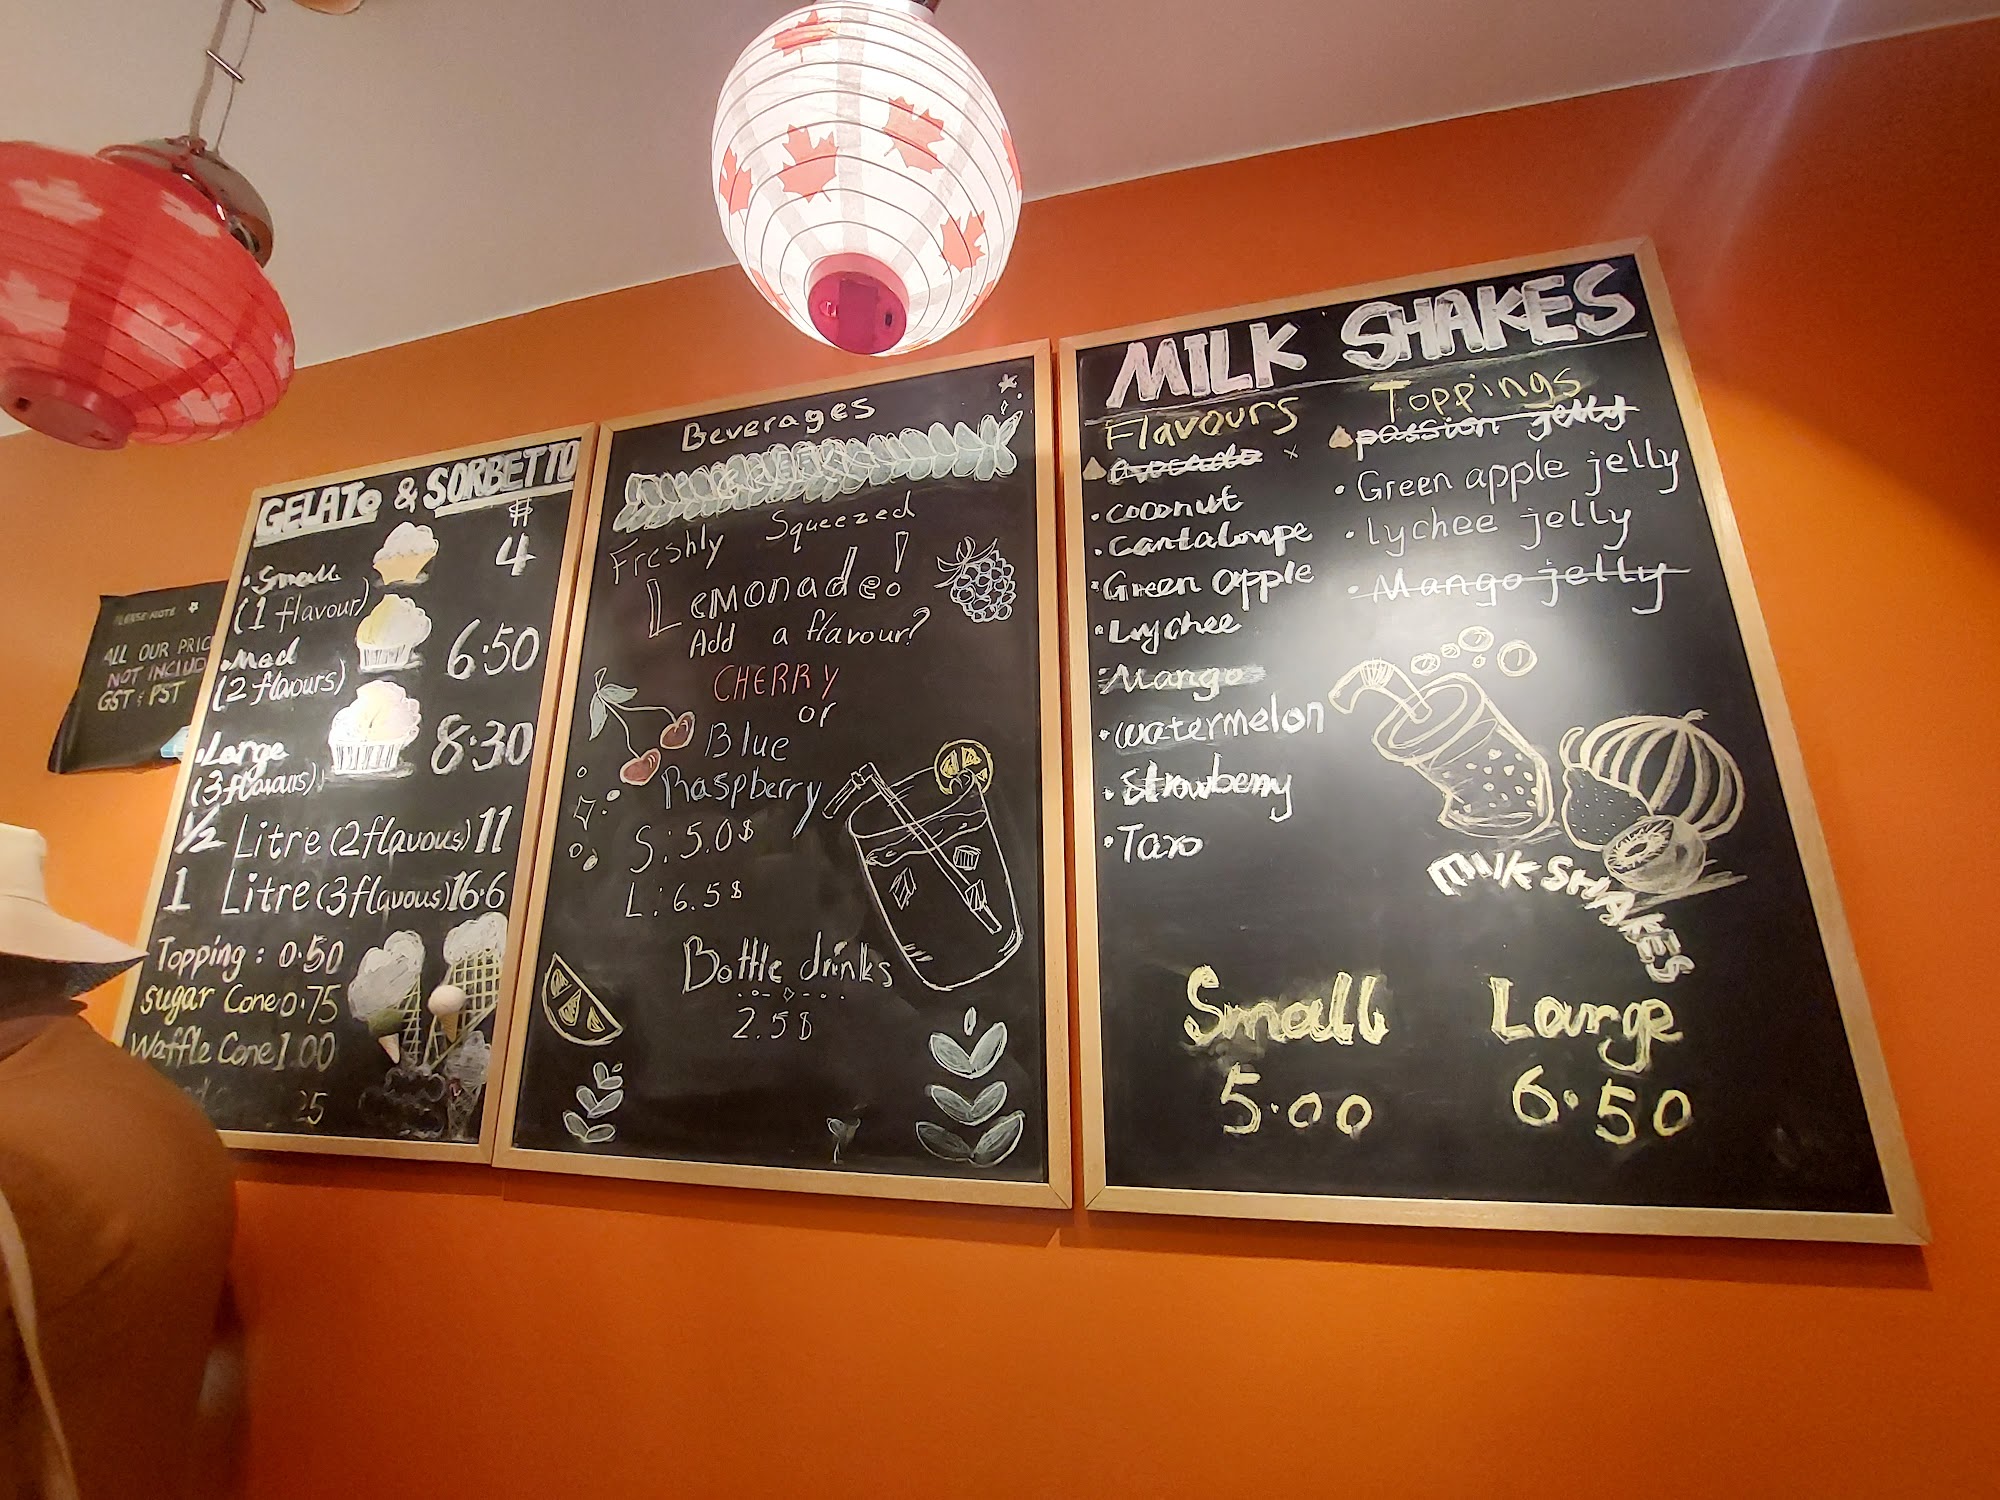 PLEASE NOTE
ALL OUR PRIC
NOT INCLUD
GST & PST
GELATO & SORBETTO
$
• Small 4
(1 flavour)
• Med 6.50
(2 flavours)
• Large 8.30
(3 flavours)
1/2 Litre (2 flavous) 11
1 Litre (3 flavous) 16.6
Topping : 0.50
sugar Cone 0.75
Waffle Cone 1.00
25
Beverages
Freshly Squeezed
Lemonade!
Add a flavour?
CHERRY
or
Blue
Raspberry
S: 5.0$
L: 6.5$
Bottle drinks
2.5$
MILK SHAKES
Flavours
Avocado x
• coconut
• Cantaloupe
• Green apple
• Lychee
• Mango
• watermelon
• Strawberry
• Taro
Toppings
passion jelly
• Green apple jelly
• Lychee jelly
• Mango jelly
MILK SHAKES
Small Large
5.00 6.50